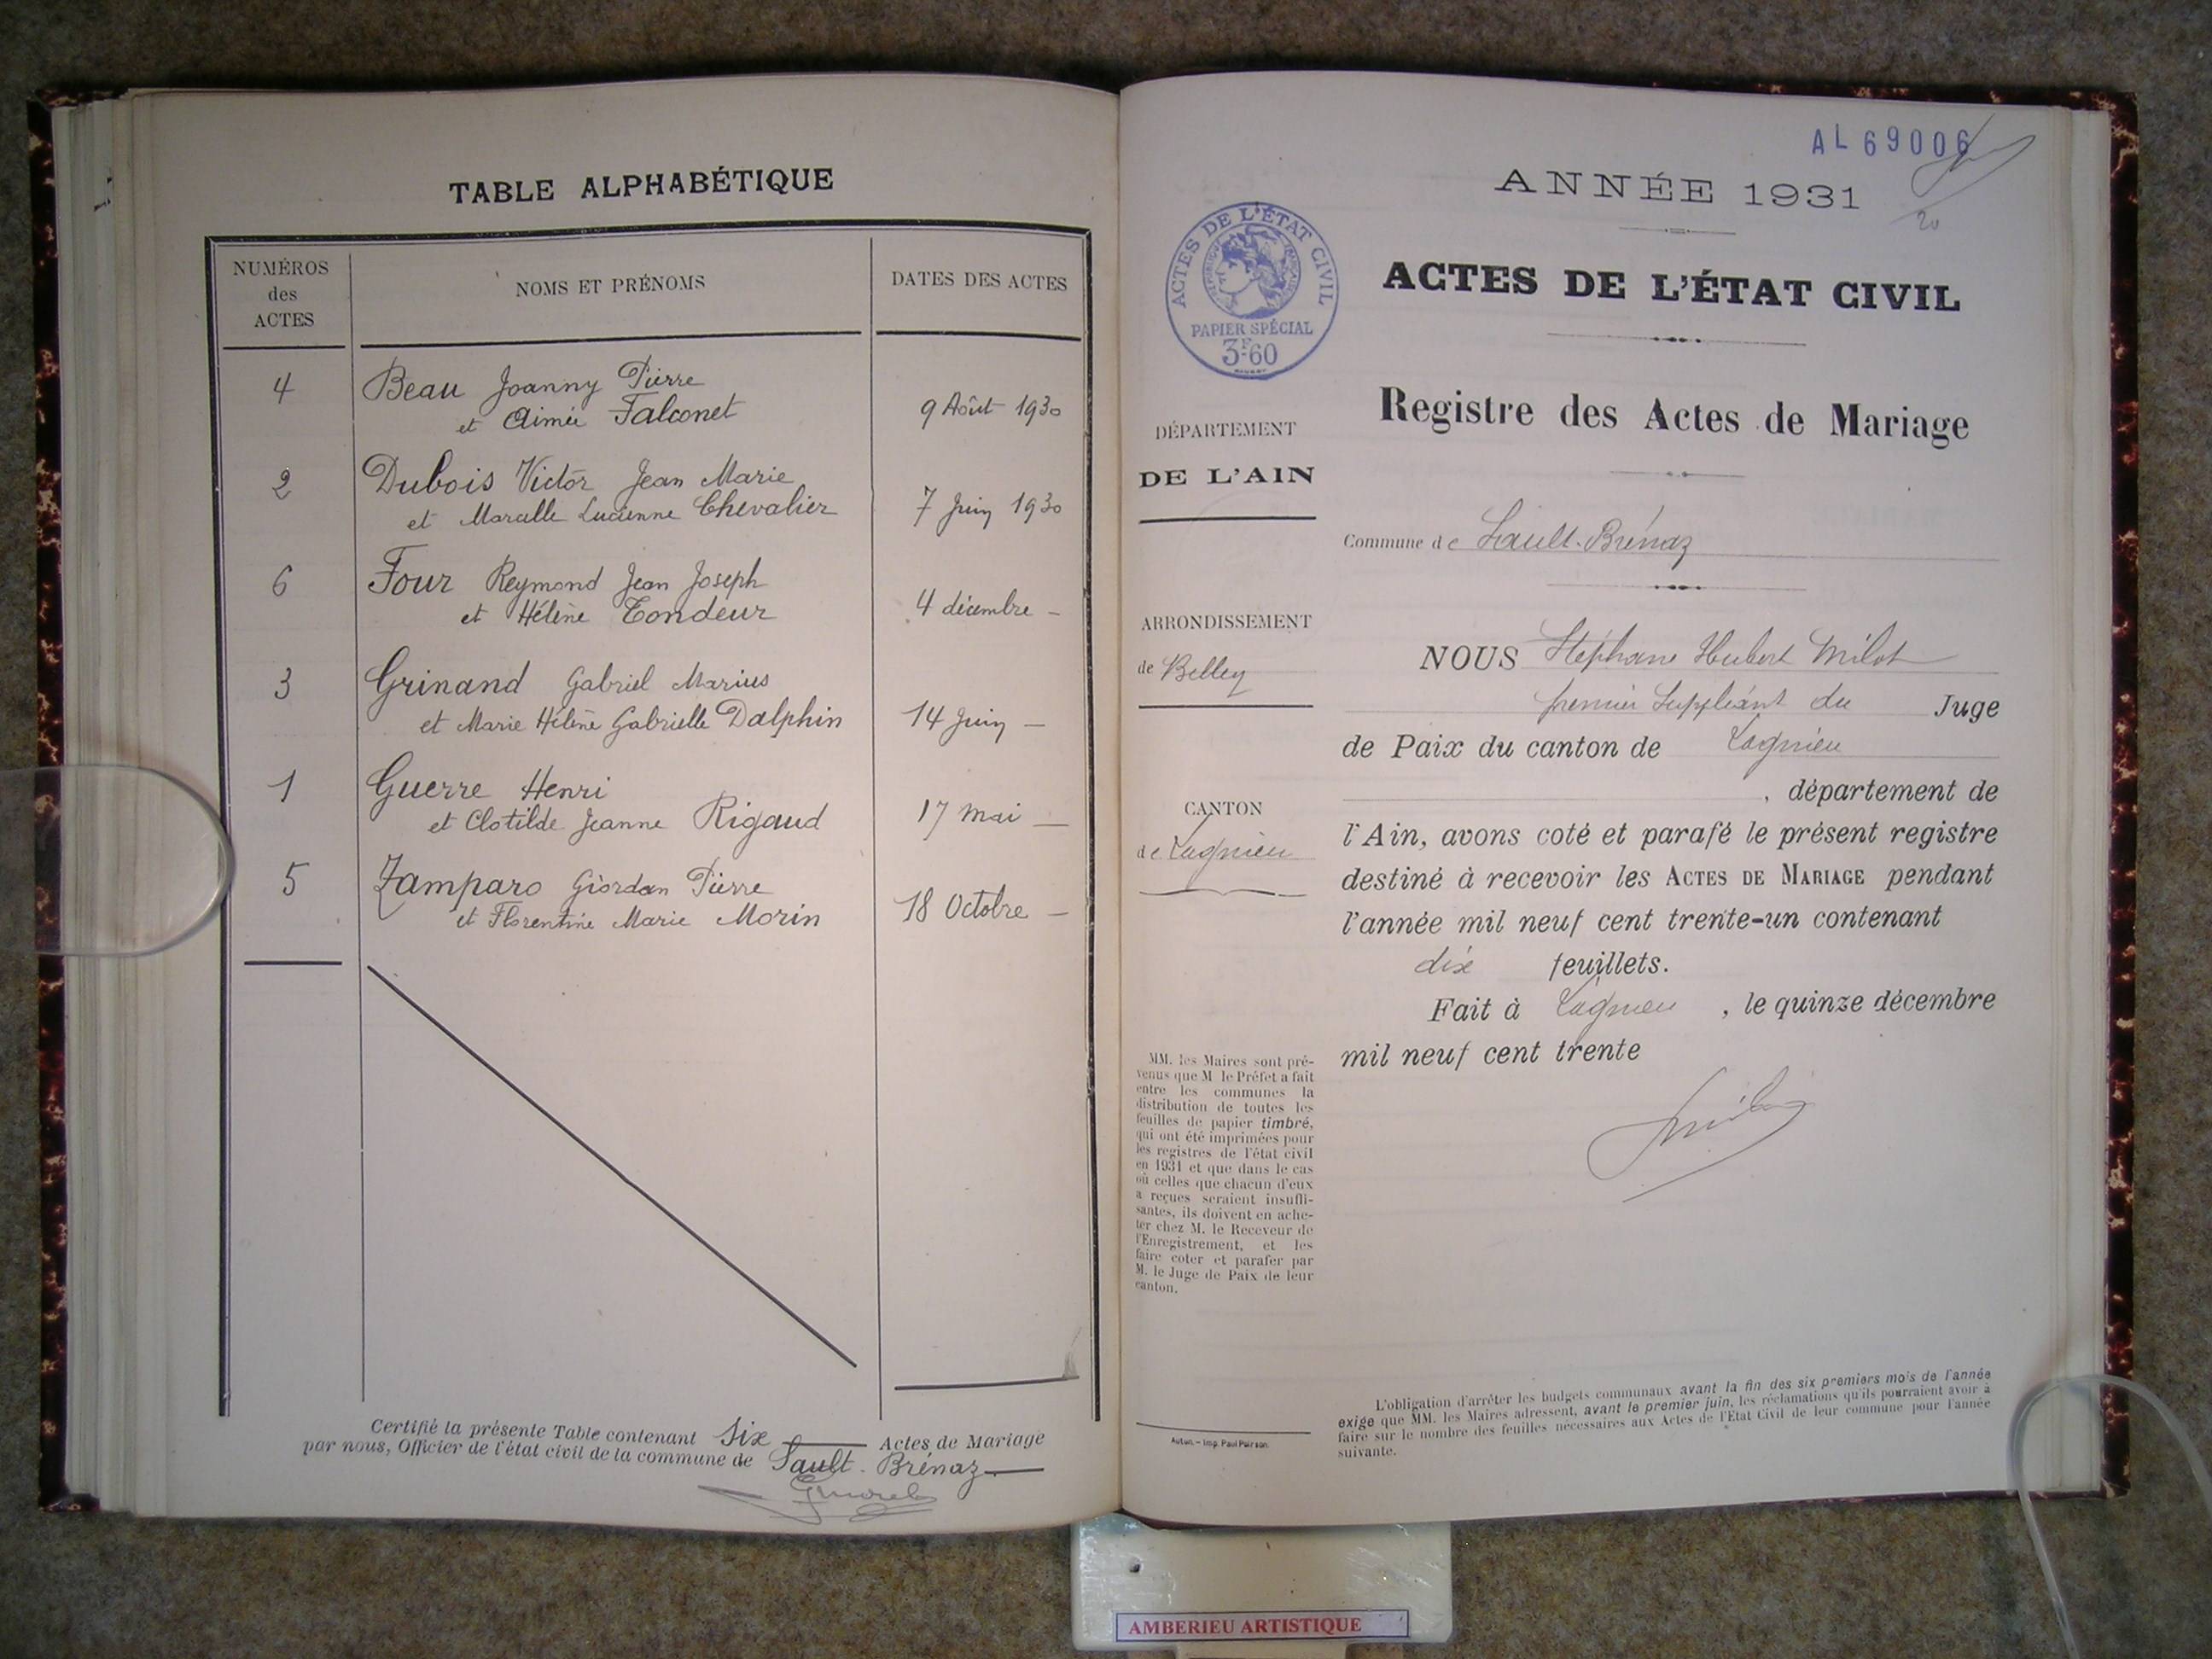 TABLE ALPHABÉTIQUE
NUMÉROS
des
ACTES
NOMS ET PRÉNOMS
DATES DES ACTES
4 Beau Joanny Pierre
et Aimée Falconet 9 Août 1930
2 Dubois Victor Jean Marie
et Marcelle Lucienne Chevalier 7 Juin 1930
6 Four Reymond Jean Joseph
et Hélène Tondeur 4 décembre -
3 Grinand Gabriel Marius
et Marie Hélène Gabrielle Dalphin 14 Juin -
1 Guerre Henri
et Clotilde Jeanne Rigaud 17 mai -
5 Zamparo Giordan Pierre
et Florentine Marie Morin 18 Octobre -
Certifié la présente Table contenant Six Actes de Mariage
par nous, Officier de l'état civil de la commune de Sault-Brénaz
AL69006
ANNÉE 1931
20
ACTES DE L'ÉTAT CIVIL
RÉPUBLIQUE FRANÇAISE
PAPIER SPÉCIAL
3F60
ACTES DE L'ÉTAT CIVIL
Registre des Actes de Mariage
DÉPARTEMENT
DE L'AIN
Commune de Sault-Brénaz
ARRONDISSEMENT
de Belley
CANTON
de Lagnieu
NOUS Stéphane Hubert Milot
premier Suppléant du Juge
de Paix du canton de Lagnieu
, département de
l'Ain, avons coté et parafé le présent registre
destiné à recevoir les ACTES DE MARIAGE pendant
l'année mil neuf cent trente-un contenant
dix feuillets.
Fait à Lagnieu, le quinze décembre
mil neuf cent trente
MM. les Maires sont pré-
venus que M le Préfet a fait
entre les communes la
distribution de toutes les
feuilles de papier timbré,
qui ont été imprimées pour
les registres de l'état civil
en 1931 et que dans le cas
où celles que chacun d'eux
a reçues seraient insuffi-
santes, ils doivent en ache-
ter chez M. le Receveur de
l'Enregistrement, et les
faire coter et parafer par
M. le Juge de Paix de leur
canton.
Autun. — Imp. Paul Pairson.
L'obligation d'arrêter les budgets communaux avant la fin des six premiers mois de l'année
exige que MM. les Maires adressent, avant le premier juin, les réclamations qu'ils pourraient avoir à
faire sur le nombre des feuilles nécessaires aux Actes de l'Etat Civil de leur commune pour l'année
suivante.
AMBERIEU ARTISTIQUE